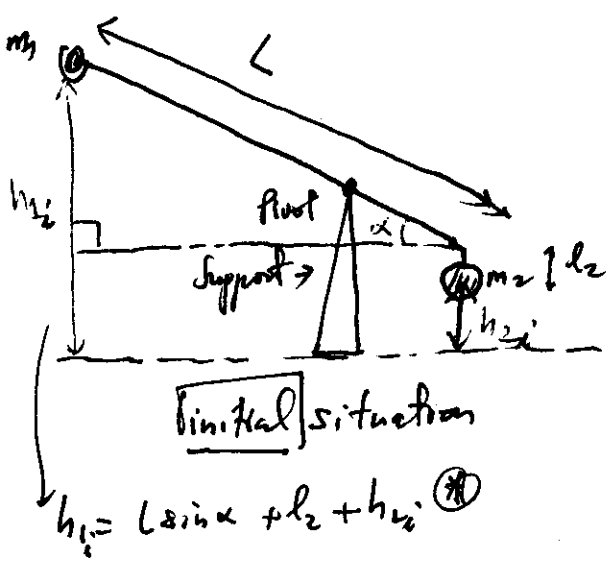 m₁
L
h₁ᵢ
Pivot
α
Support →
m₂
l₂
h₂ᵢ
initial situation
h₁ᵢ = L sinα + l₂ + h₂ᵢ *